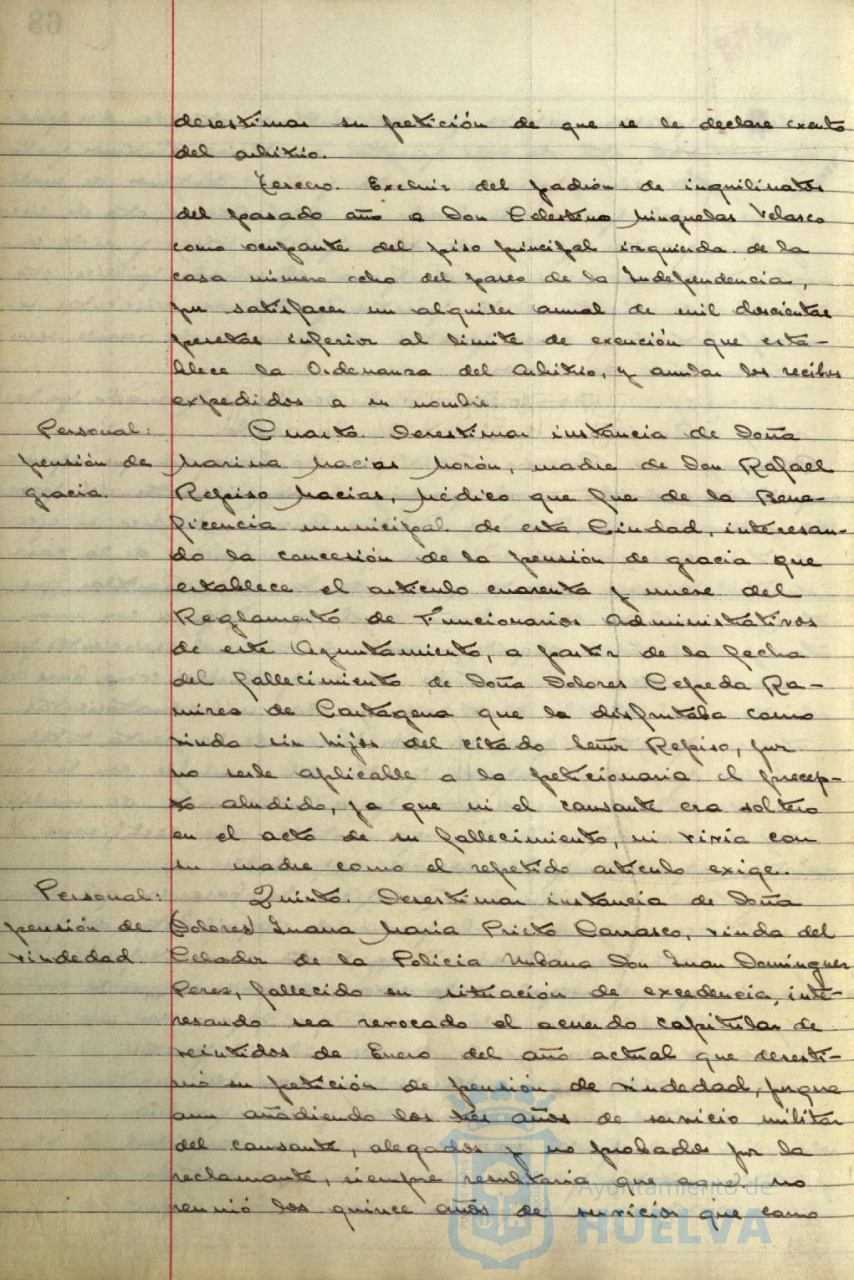 desestimar su petición de que se le declare exento
del arbitrio.
Tercero. Excluir del padrón de inquilinatos
del pasado año a Don Celestino Minguelas Velasco
como ocupante del piso principal izquierda de la
casa número ocho del paseo de la Independencia,
por satisfacer un alquiler anual de mil doscientas
pesetas inferior al límite de exención que esta-
blece la Ordenanza del Arbitrio, y anular los recibos
expedidos a su nombre.
Personal:
pensión de
gracia.
Cuarto. Desestimar instancia de Doña
Marina Macias Morón, madre de Don Rafael
Repiso Macias, Médico que fue de la Bene-
ficencia municipal de esta Ciudad, interesan-
do la concesión de la pensión de gracia que
establece el artículo cuarenta y nueve del
Reglamento de Funcionarios Administrativos
de este Ayuntamiento, a partir de la fecha
del fallecimiento de Doña Dolores Cepeda Ra-
mirez de Cartagena que la disfrutaba como
viuda sin hijos del citado Señor Repiso, por
no serle aplicable a la peticionaria el precep-
to aludido, ya que ni el causante era soltero
en el acto de su fallecimiento, ni vivía con
su madre como el repetido artículo exige.
Personal:
pensión de
viudedad.
Quinto. Desestimar instancia de Doña
(Dolores) Juana María Prieto Carrasco, viuda del
Celador de la Policía Urbana Don Juan Domínguez
Perez, fallecido en situación de excedencia, inte-
resando sea revocado el acuerdo capitular de
veintidos de Enero del año actual que desesti-
mó su petición de pensión de viudedad, porque
aun añadiendo los tres años de servicio militar
del causante, alegados y no probados por la
reclamante, siempre resultaría que aquel no
reunió los quince años de servicios que como
Ayuntamiento de
HUELVA